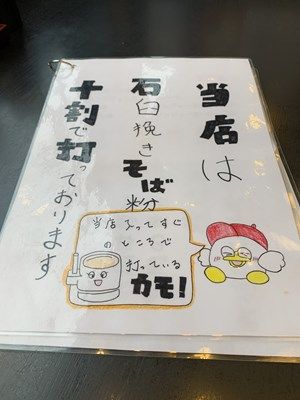 当店は
石臼挽きそば粉
十割で打っております
当店入ってすぐ
のところで
打っている
カモ!